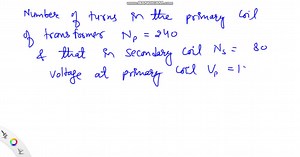 Number of turns in the primary coil
of transformer Np = 240
& that in secondary coil Ns = 80
Voltage at primary coil Vp = 1